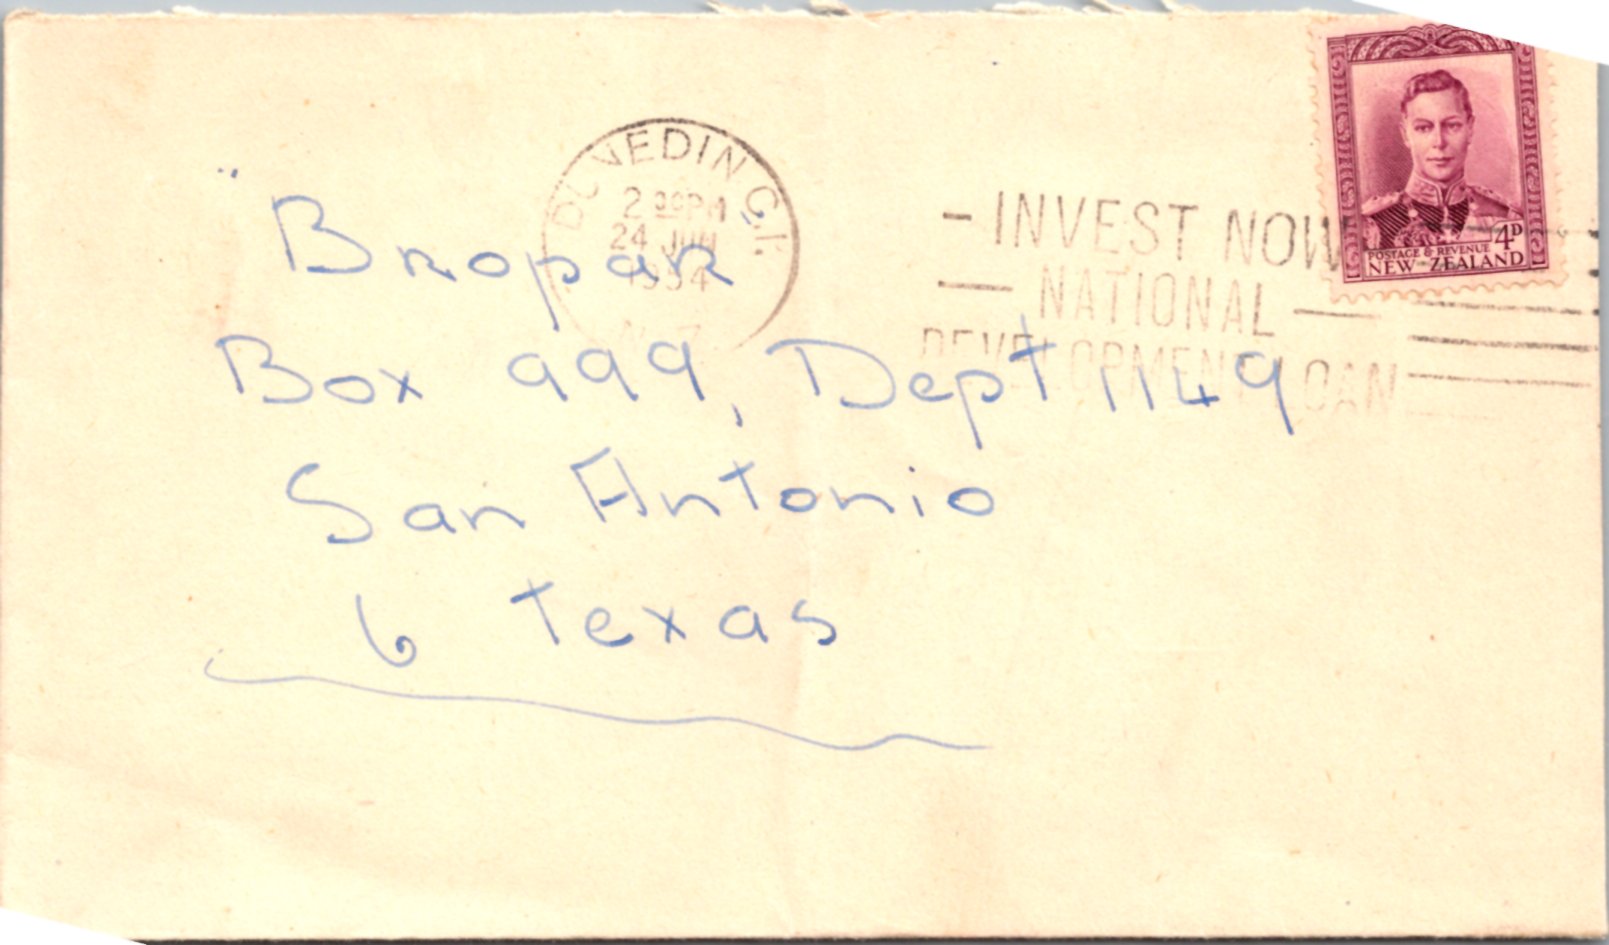 DUNEDIN C.1.
2 30PM
24 JUN
1954
N.Z.
- INVEST NOW
NATIONAL
DEVELOPMENT LOAN
4D
POSTAGE & REVENUE
NEW ZEALAND
Bropar
Box 999, Dept 1149
San Antonio
6 Texas